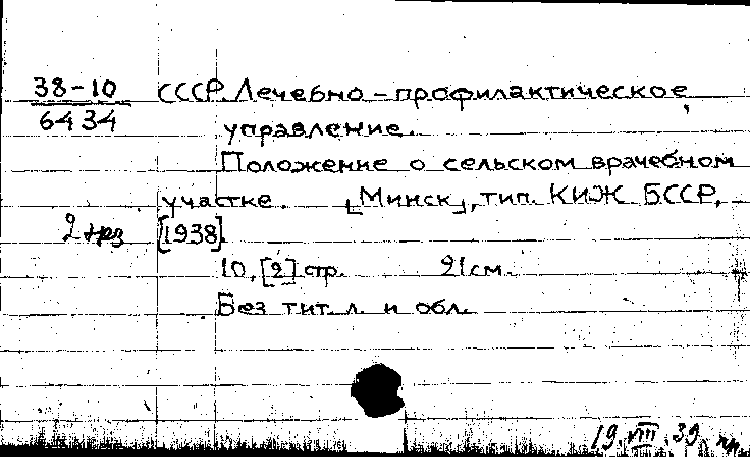 38-10 СССР. Лечебно-профилактическое
6434 управление.
Положение о сельском врачебном
участке. [Минск], тип. КИЖ БССР,
2 экз [1938].
10, [2] стр. 21 см.
Без тит. л. и обл.
19.VIII.39.